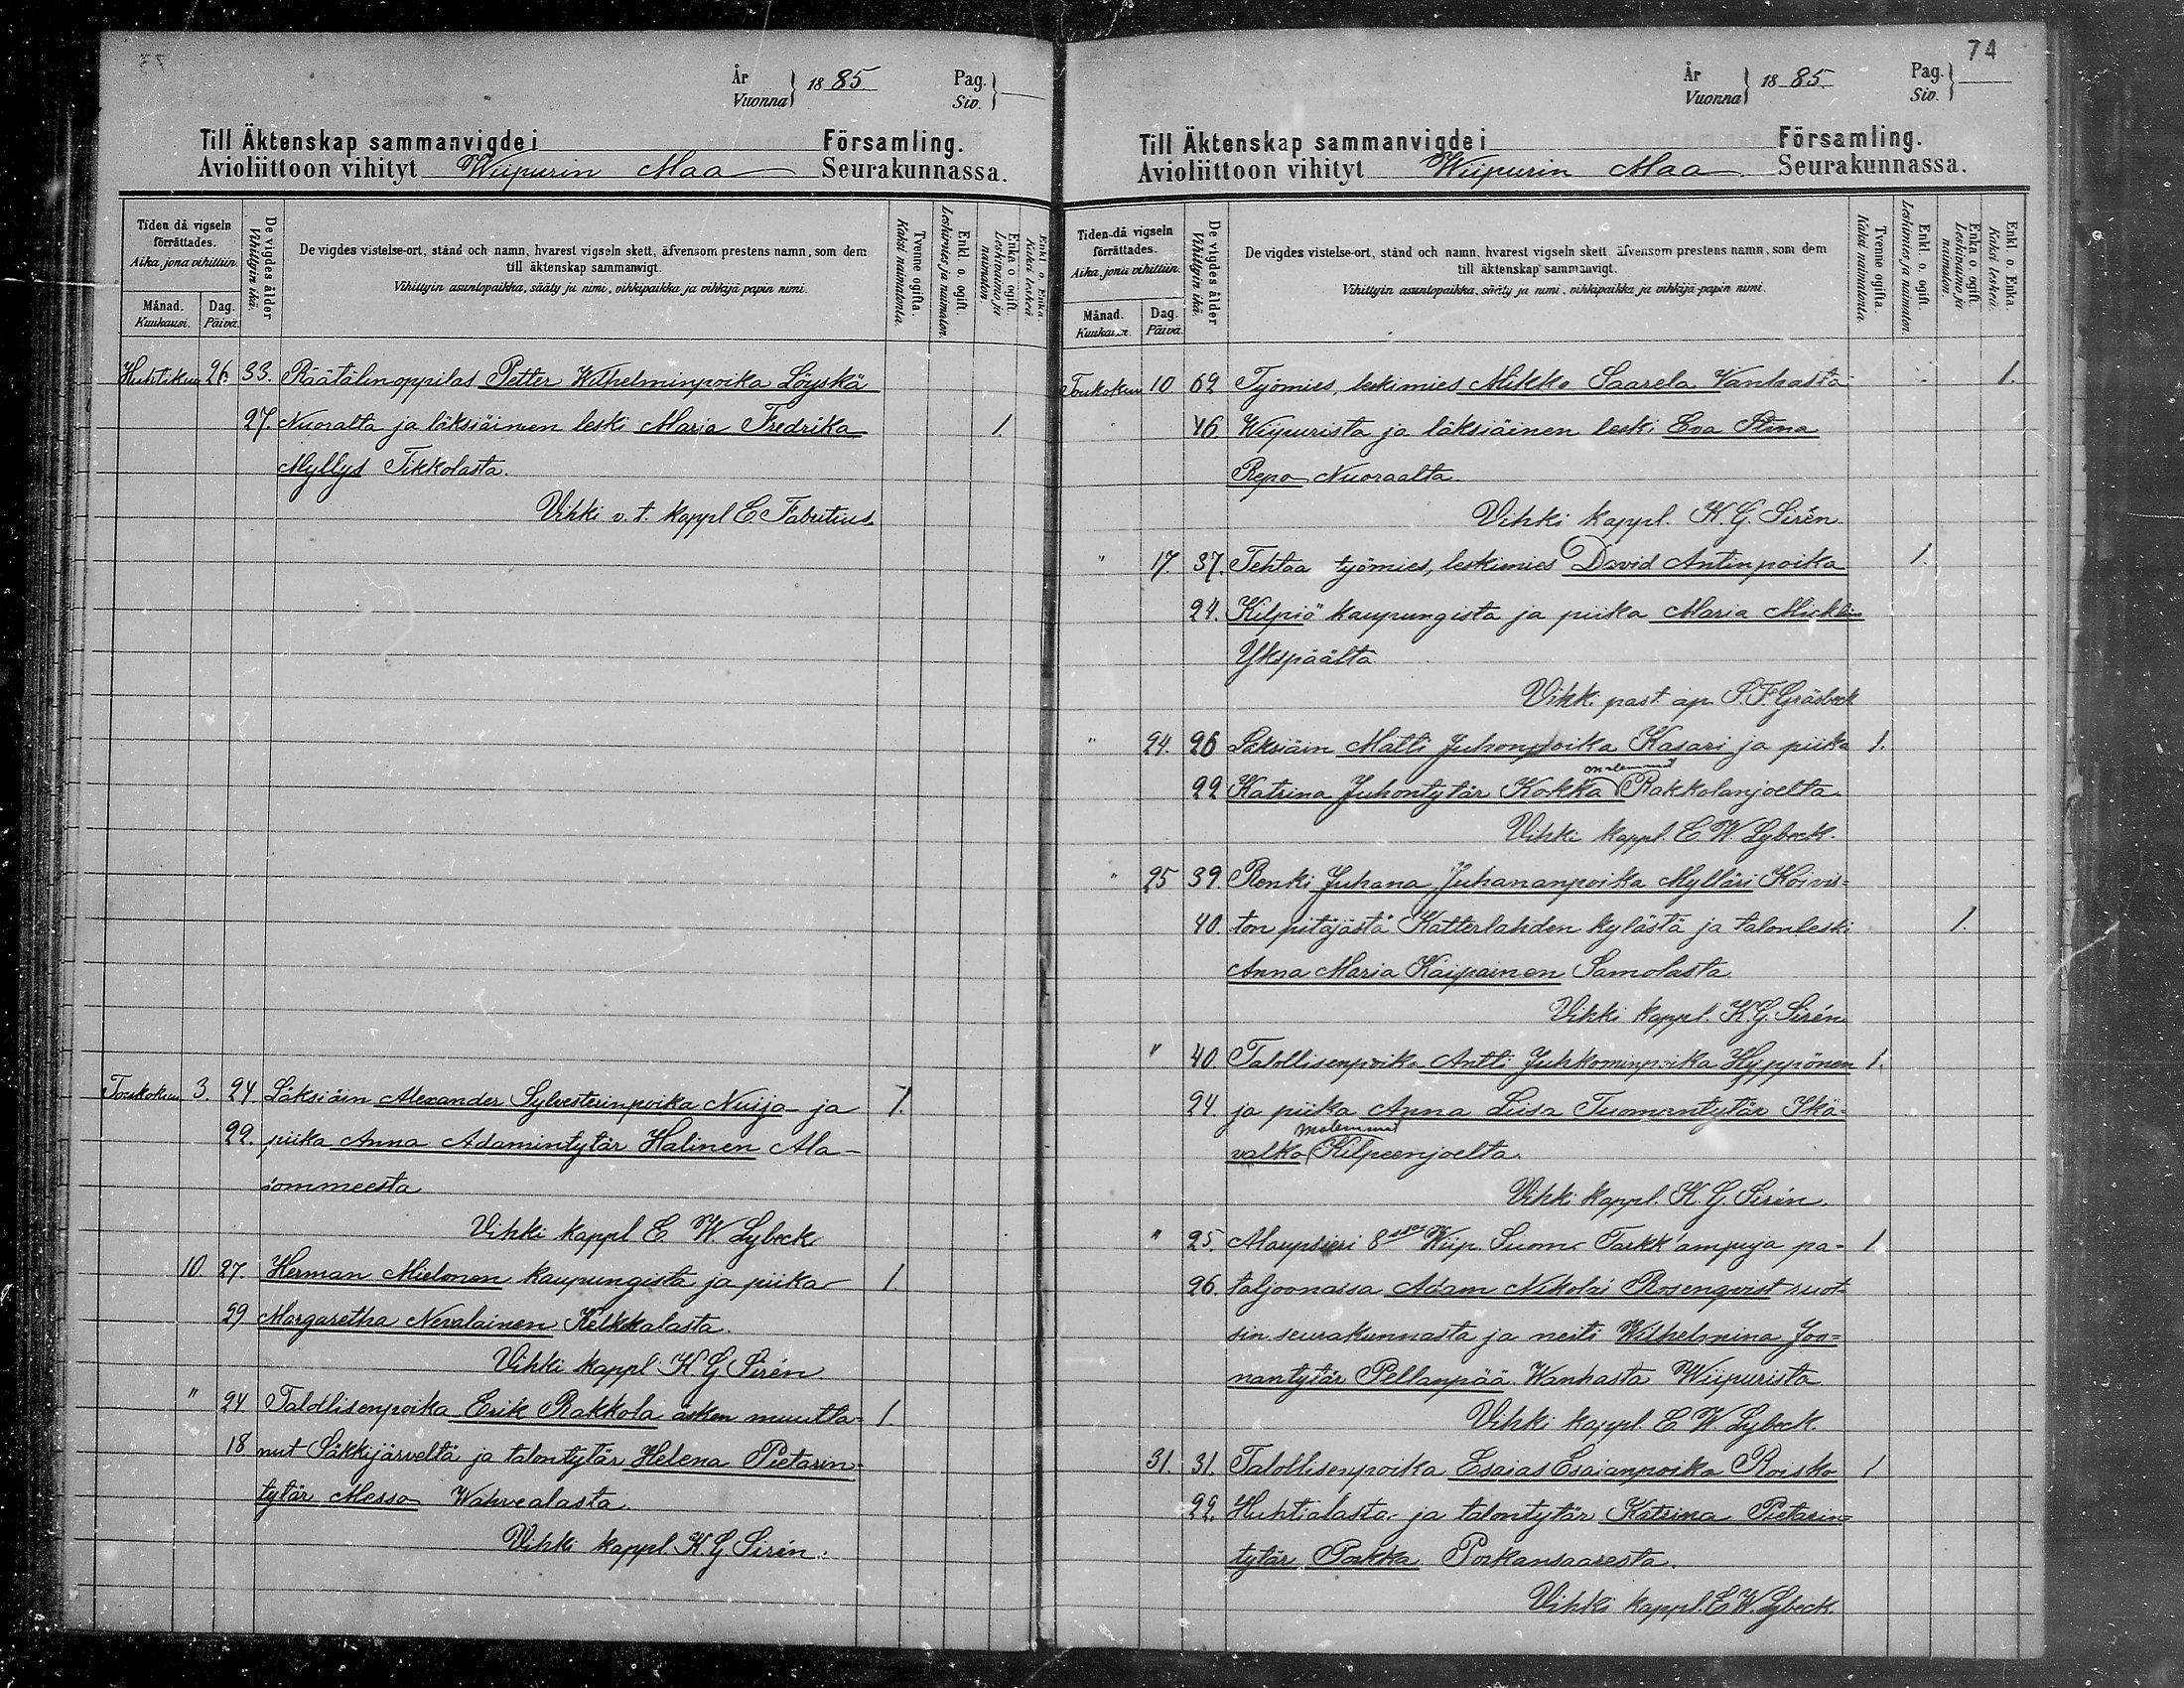 År
Vuonna } 1885.
Pag.
Siv. }
Till Äktenskap sammanvigde i Församling.
Avioliittoon vihityt Wiipurin Maa Seurakunnassa.
Tiden då vigseln förrättades.
Aika, jona vihittiin.
Månad.
Kuukausi.
Dag.
Päivä.
De vigdes ålder
Vihittyin ikä.
De vigdes vistelse-ort, stånd och namn, hvarest vigseln skett, äfvensom prestens namn, som dem
till äktenskap sammanvigt.
Vihittyin asuntopaikka, sääty ja nimi, vihkipaikka ja vihkijä papin nimi.
Tvenne ogifta.
Kaksi naimatonta.
Enkl. o. ogift.
Leskimies ja naimaton.
Enka o. ogift.
Leskivaimo ja naimaton
Enkl. o. Enka.
Kaksi leskeä.
Huhtikuu 26. 33. Räätälinoppilas Petter Wilhelminpoika Löyskä
27. Nuoralta ja läksiäinen leski Maria Fredrika 1.
Myllys Tikkolasta.
Vihki v. t. kappl E. Fabritius.
Toukokuu 3. 24. Läksiäin Alexander Sylvesterinpoika Nuija ja 1.
22. piika Anna Adamintytär Halinen Ala-
sommeesta
Vihki kappl E. W. Lybeck
10. 27. Herman Mielonen kaupungista ja piika 1.
29 Margaretha Nevalainen Kelkkalasta.
Vihki kappl. K. G. Sirén
" 24. Talollisenpoika Erik Rakkola äsken muutta- 1
18 nut Säkkijärveltä ja talontytär Helena Pietarin-
tytär Messo Wahvealasta.
Vihki kappl. K. G. Sirén.
74
År
Vuonna } 1885.
Pag.
Siv. }
Till Äktenskap sammanvigde i Församling.
Avioliittoon vihityt Wiipurin Maa Seurakunnassa.
Tiden då vigseln förrättades.
Aika, jona vihittiin.
Månad.
Kuukausi.
Dag.
Päivä.
De vigdes ålder
Vihittyin ikä.
De vigdes vistelse-ort, stånd och namn, hvarest vigseln skett äfvensom prestens namn, som dem
till äktenskap sammanvigt.
Vihittyin asuntopaikka, sääty ja nimi, vihkipaikka ja vihkijä papin nimi
Tvenne ogifta.
Kaksi naimatonta.
Enkl. o. ogift.
Leskimies ja naimaton.
Enka o. ogift.
Leskivaimo ja naimaton.
Enkl. o. Enka.
Kaksi leskeä.
Toukokuu 10. 62 Työmies, leskimies Mikko Saarela Vanhasta 1.
46 Wiipurista ja läksiäinen leski Eva Stina
Repo Nuoraalta.
Vihki kappl. K. G. Sirén.
" 17. 37. Tehtaa työmies, leskimies David Antinpoika 1.
24. Kilpiö kaupungista ja piika Maria Micklin
Ykspäältä
Vihki past. ap. S. F. Gräsbeck
" 24. 26 Läksiäin Matti Juhonpoika Kasari ja piika 1.
molemmat
22 Katrina Juhontytär Korkka Rakkolanjoelta.
Vihki kappl. E. W. Lybeck.
" 25 39. Renki Juhana Juhananpoika Mylläri Koivis=
40. ton pitäjästä Katterlahden kylästä ja talonleski 1.
Anna Maria Kaipainen Samolasta
Vihki kappl. K. G. Sirén
" 40. Talollisenpoika Antti Juhkominpoika Hyppönen 1.
24 ja piika Anna Liisa Tuomantytär Ikä=
molemmat
valko Kilpeenjoelta.
Vihki kappl. K. G. Sirén.
" 25. Alaupsieri 8 Wiip. Suom. Tarkk'ampuja pa= 1
26. taljoonassa Adam Nikolai Rosenqvist ruot=
sin seurakunnasta ja neiti Wilhelmina Joo=
nantytär Pellanpää Wanhasta Wiipurista
Vihki kappl. E. W. Lybeck.
31. 31. Talollisenpoika Esaias Esaianpoika Roisko 1
22. Huhtialasta ja talontytär Katrina Pietarin=
tytär Porkka Porkansaaresta.
Vihki kappl. E. W. Lybeck.